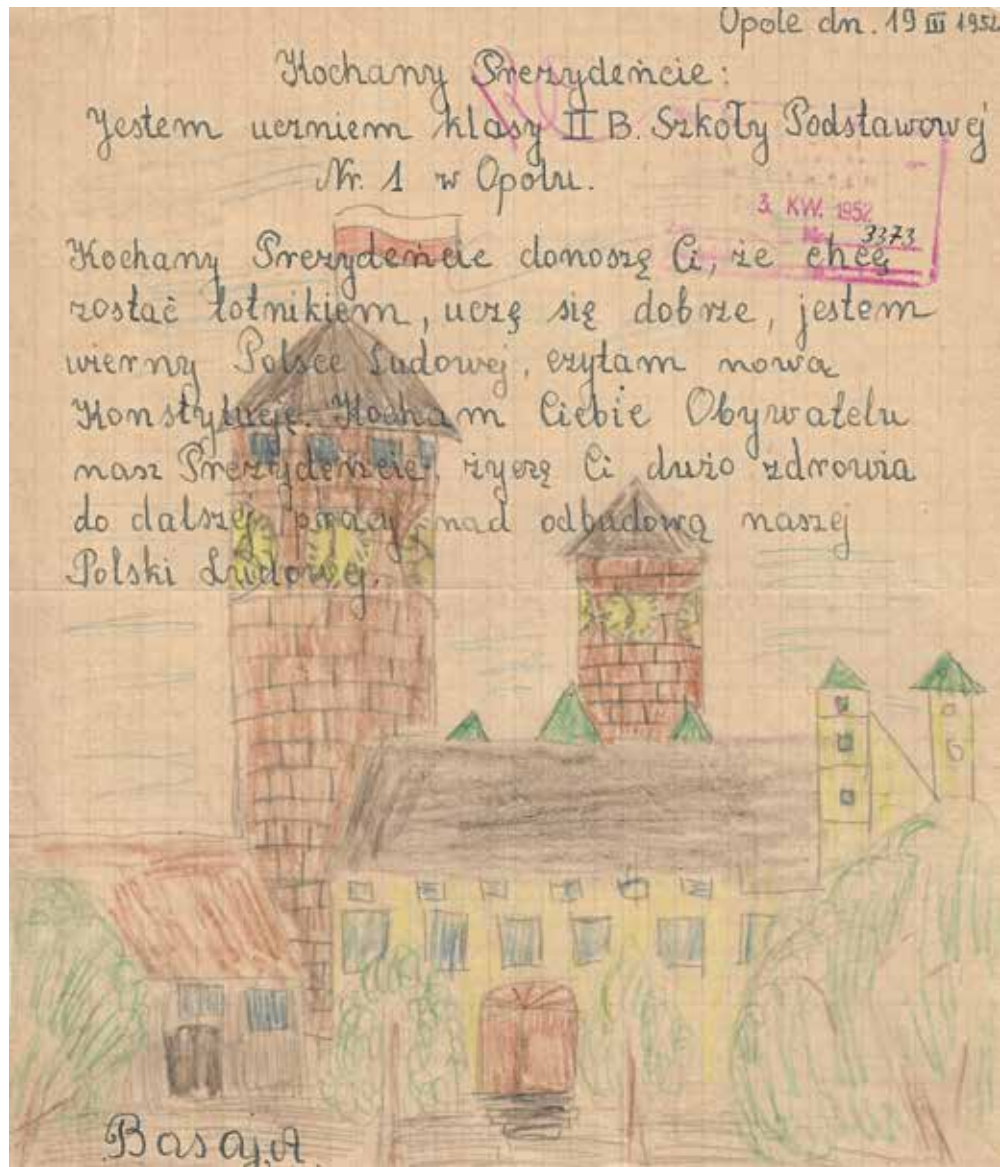 Opole dn. 19 III 1952
Kochany Prezydeńcie:
Jestem uczniem klasy II B. Szkoły Podstawowej
Nr. 1 w Opolu.
3. KW. 1952
3373
Kochany Prezydeńcie donoszę Ci, że chcę
zostać lotnikiem, uczę się dobrze, jestem
wierny Polsce Ludowej, czytam nową
Konstytucję. Kocham Ciebie Obywatelu
nasz Prezydeńcie, życzę Ci dużo zdrowia
do dalszej pracy nad odbudową naszej
Polski Ludowej.
Basaj. A